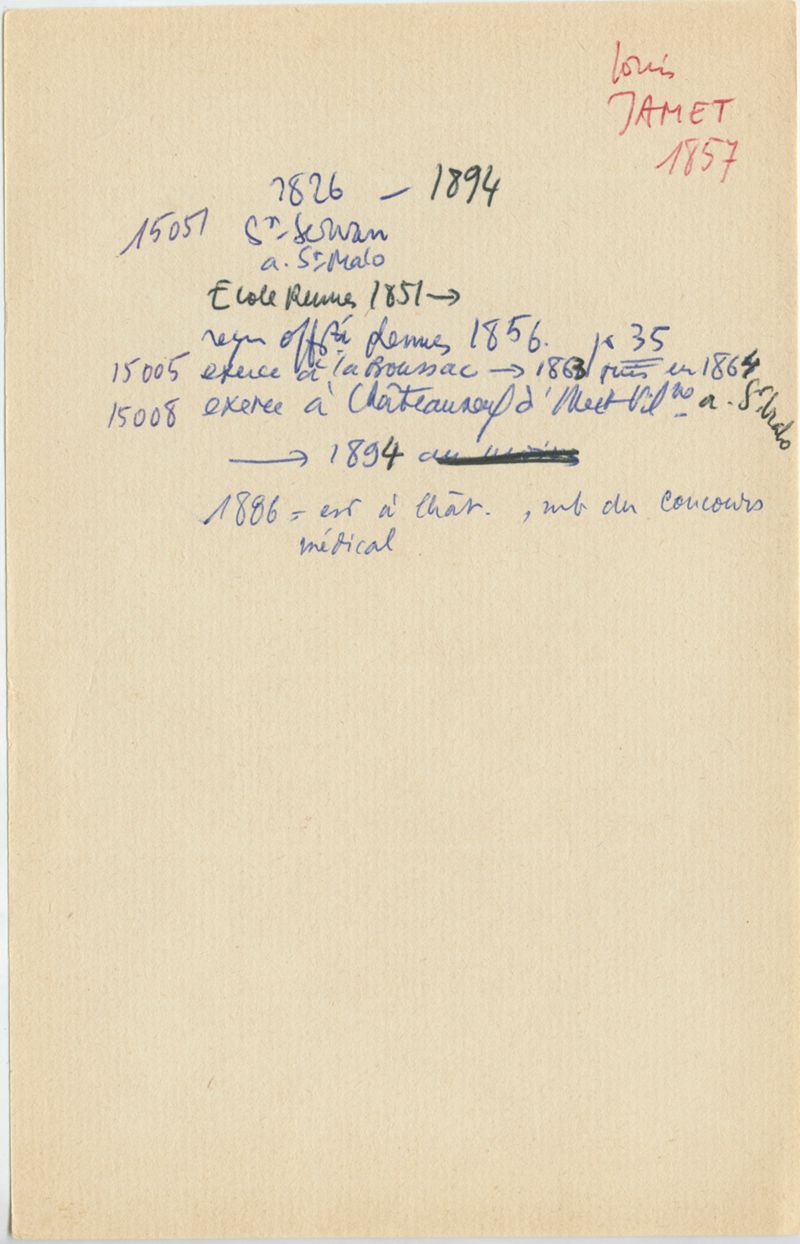 Louis
JAMET
1857
1826 – 1894
15051 St-Servan
a. St-Malo
Ecole Rennes 1851 →
reçu off à Rennes 1856. 35
15005 exerce à La Boussac → 1863 puis en 1864
15008 exerce à Châteauneuf d'Ille et Vilne a. St Malo
→ 1894 au moins
1886 = est à Chât. , mb du Concours
médical